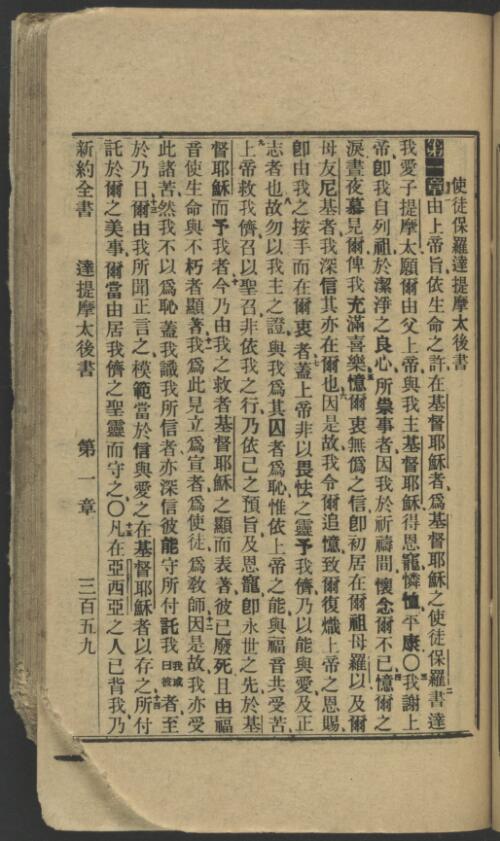 使徒保羅達提摩太後書
第一章由上帝旨依生命之許在基督耶穌者爲基督耶穌之使徒保羅書達二
我愛子提摩太願爾由父上帝與我主基督耶穌得恩寵憐恤平康〇我謝上三
帝卽我自列祖於潔淨之良心所崇事者因我於祈禱間懷念爾不已憶爾之四
淚晝夜慕見爾俾我充滿喜樂憶爾衷無僞之信卽初居在爾祖母羅以及爾五
母友尼基者我深信其亦在爾也因是故我令爾追憶致爾復熾上帝之恩賜六
卽由我之按手而在爾衷者蓋上帝非以畏怯之靈予我儕乃以能與愛及正七
志者也故勿以我主之證與我爲其囚者爲恥惟依上帝之能與福音共受苦八
上帝救我儕召以聖召非依我之行乃依己之預旨及恩寵卽永世之先於基九
督耶穌而予我者今乃由我之救者基督耶穌之顯而表著彼已廢死且由福十
音使生命與不朽者顯著我爲此見立爲宣者爲使徒爲敎師因是故我亦受十一 十二
此諸苦然我不以爲恥蓋我識我所信者亦深信彼能守所付託我我或曰彼者至
於乃日爾由我所聞正言之模範當於信與愛之在基督耶穌者以存之所付十三 十四
託於爾之美事爾當由居我儕之聖靈而守之〇凡在亞西亞之人已背我乃十五
新約全書 達提摩太後書 第一章 三百五九